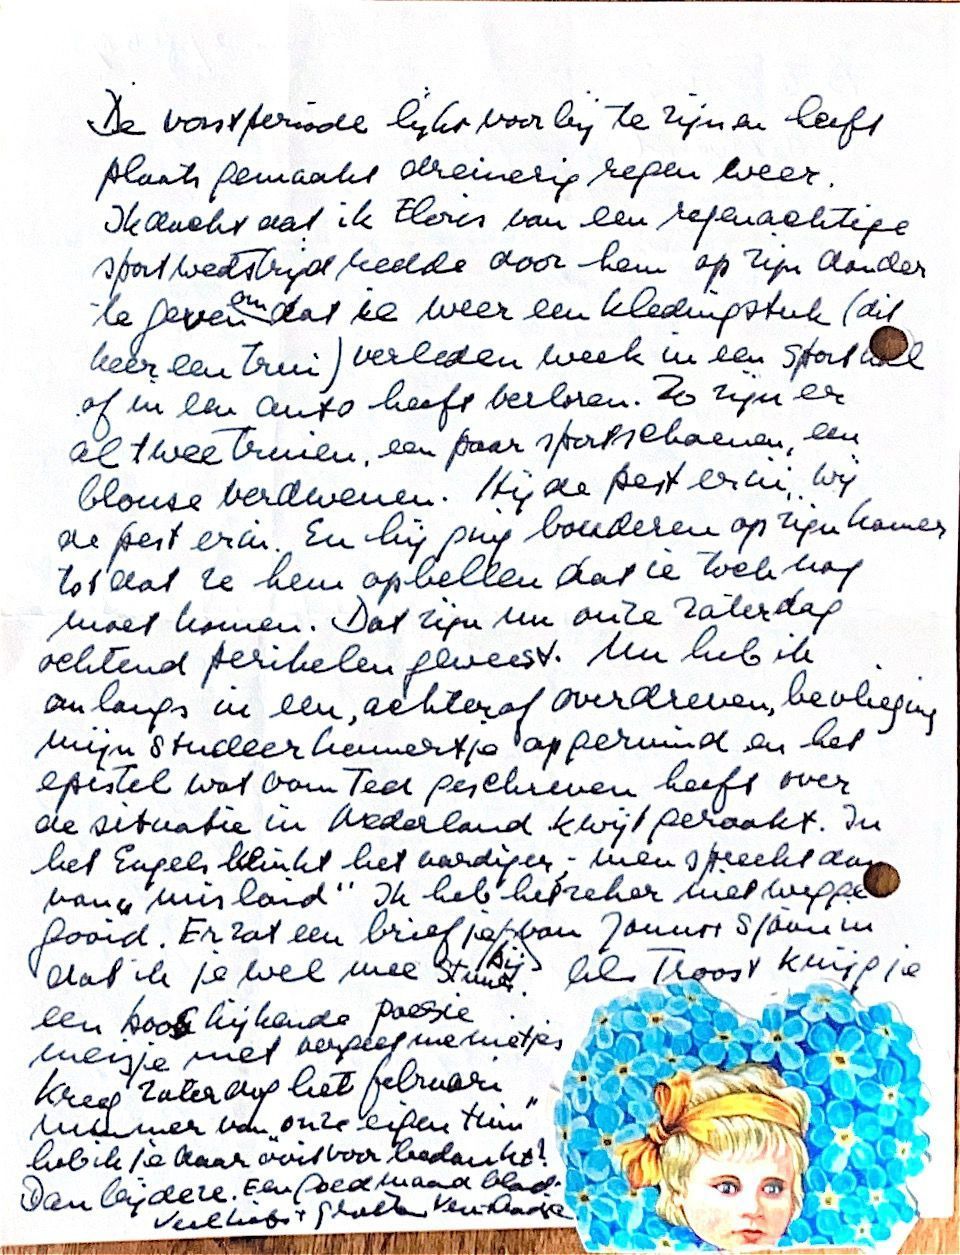 De vorstperiode lijkt voorbij te zijn en heeft
plaats gemaakt dreinerig regen weer.
Ik dacht dat ik Floris van een regenachtige
sportwedstrijd redde door hem op zijn donder
te geven omdat ie weer een kledingstuk (dit
keer een trui) verleden week in een sporthal
of in een auto heeft verloren. Zo zijn er
al twee truien, een paar sportschoenen, een
blouse verdwenen. Hij de pest erin, wij
de pest erin. En hij ging bouderen op zijn kamer
totdat ze hem opbellen dat ie toch nog
moet komen. Dat zijn nu onze zaterdag
ochtend perikelen geweest. Nu heb ik
onlangs in een, achteraf overdreven, bevlieging
mijn studeerkamertje opgeruimd en het
epistel wat oom Ted geschreven heeft over
de situatie in Nederland kwijt geraakt. In
het Engels klinkt het aardiger; men spreekt dan
van "mislaid" Ik heb het zeker niet wegge
gooid. Er zat een briefje van Sjaan in
dat ik je wel mee stuur. Als troost krijg je
een boos kijkende poesie
meisje met vergeetmenietjes
Kreeg zaterdag het februari
nummer van "onze eigen tuin"
heb ik je daar ooit voor bedankt?
Dan bij deze. Een goed maandblad.
Veel liefs + groeten